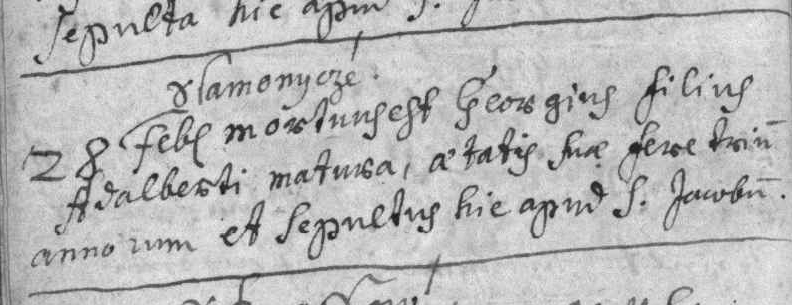 Sepulta hic apud S.
Slamonycze.
28 Feb mortuus est Georgius filius
Adalberti matura, ætatis suæ fere triū
annorum et sepultus hic apud S. Jacobū.